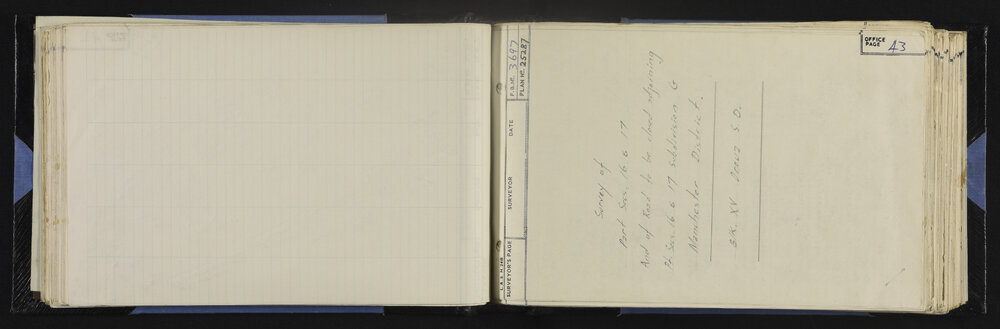 OFFICE PAGE 43
F.B. No. 3697
PLAN No. 25287
DATE
SURVEYOR
SURVEYOR'S PAGE
Survey of
Part Secs. 16 & 17
And of Road to be closed adjoining
Pt. Secs. 16 & 17 subdivision G
Manchester District.
BK. XV S.D.